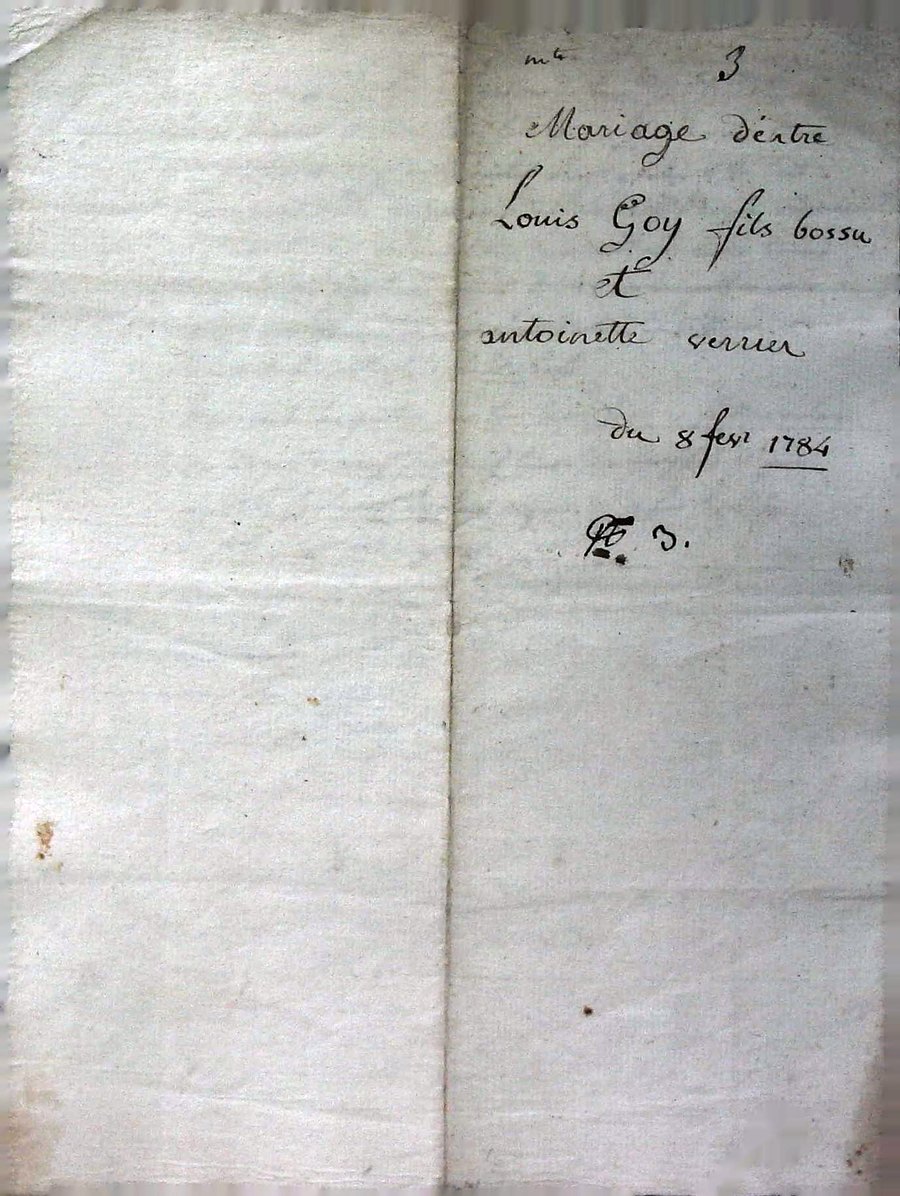 mte 3
Mariage d'entre
Louis Goy fils bossu
et
antoinette verrier
du 8 fevr 1784
3.